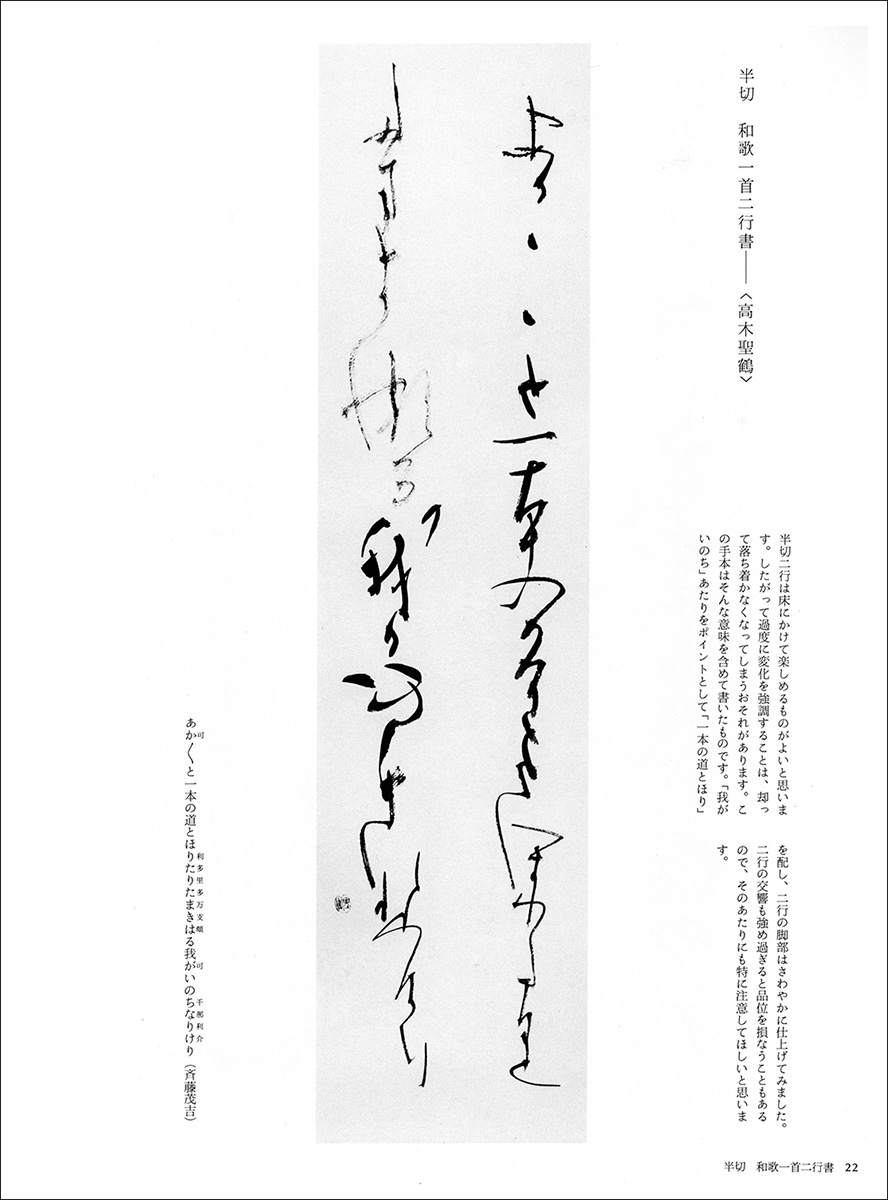 半切　和歌一首二行書──〈高木聖鶴〉
半切二行は床にかけて楽しめるものがよいと思いま
す。したがって過度に変化を強調することは、却っ
て落ち着かなくなってしまうおそれがあります。こ
の手本はそんな意味を含めて書いたものです。「我が
いのち」あたりをポイントとして「一本の道とほり」
を配し、二行の脚部はさわやかに仕上げてみました。
二行の交響も強め過ぎると品位を損なうこともある
ので、そのあたりにも特に注意してほしいと思いま
す。
あか〱と一本の道とほりたりたまきはる我がいのちなりけり（斉藤茂吉）
可　利多里多万支頗　可　千那利介
半切　和歌一首二行書　22